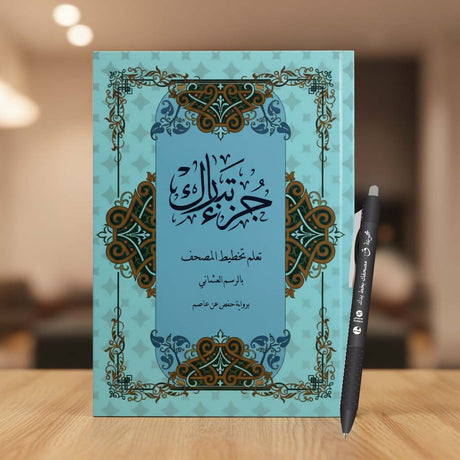 جزء تبارك
تعلم تخطيط المصحف
بالرسم العثماني
برواية حفص عن عاصم
مصحفك بخط يدك